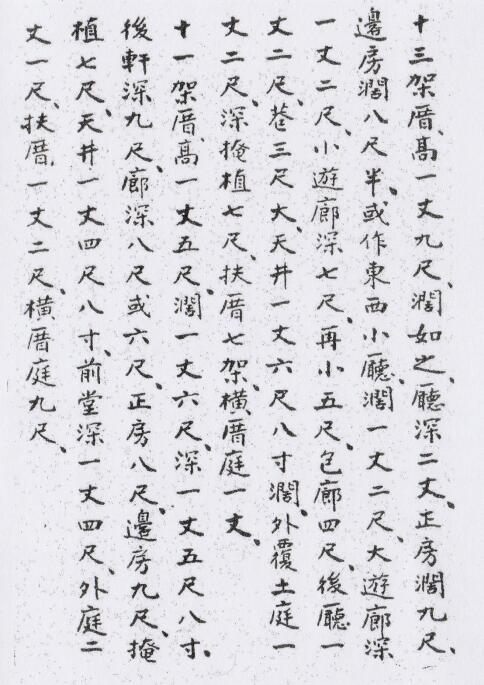 十三架厝、高一丈九尺、濶如之、廳深二丈、正房濶九尺、
邊房濶八尺半、或作東西小廳、濶一丈二尺、大遊廊深
一丈二尺、小遊廊深七尺、再小五尺、包廊四尺、後廳一
丈二尺、巷三尺大、天井一丈六尺八寸濶、外覆土庭一
丈二尺、深掩植七尺、扶厝七架、橫厝庭一丈、
十一架厝、高一丈五尺、濶一丈六尺、深一丈五尺八寸、
後軒深九尺、廊深八尺或六尺、正房八尺、邊房九尺、掩
植七尺、天井一丈四尺八寸、前堂深一丈四尺、外庭二
丈一尺、扶厝一丈二尺、橫厝庭九尺、